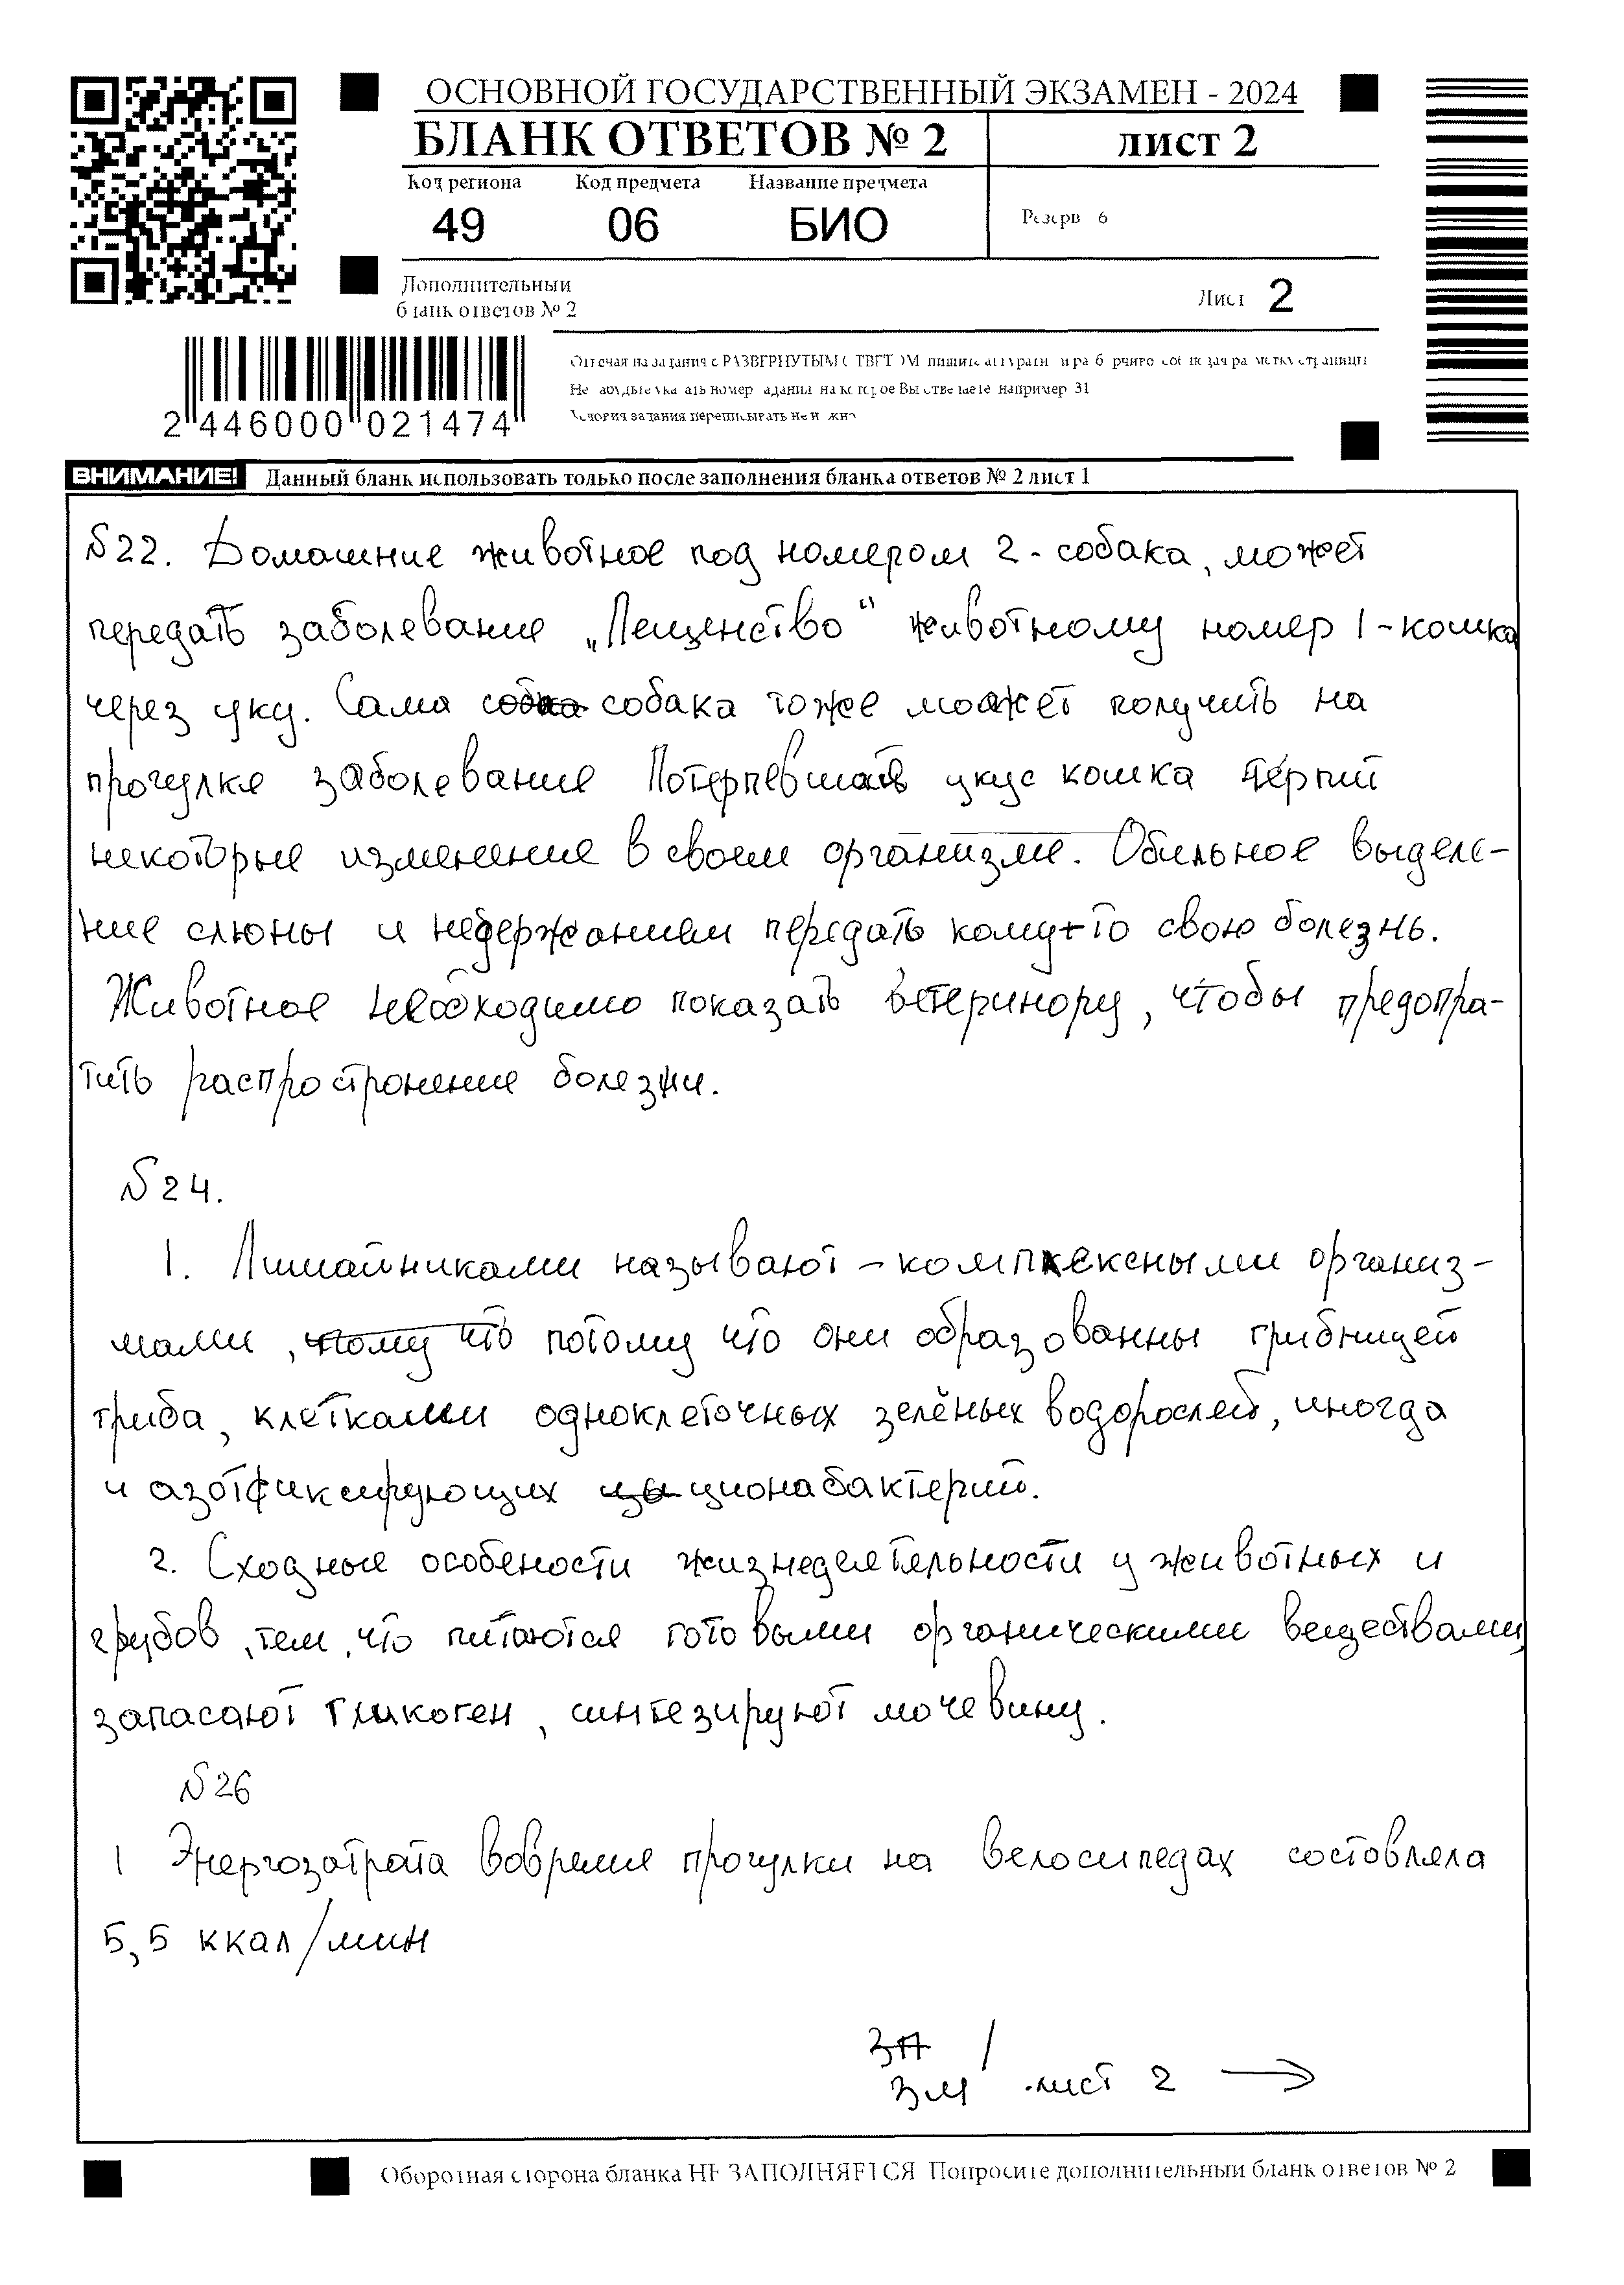 ОСНОВНОЙ ГОСУДАРСТВЕННЫЙ ЭКЗАМЕН - 2024
БЛАНК ОТВЕТОВ № 2 лист 2
Код региона Код предмета Название предмета
49 06 БИО
Резерв 6
Дополнительный
бланк ответов № 2
Лист 2
2 446000 021474
Отвечая на задания с РАЗВЕРНУТЫМ ОТВЕТОМ пишите аккуратно и разборчиво соблюдая разметку страницы
Не забудьте указать номер задания на которое Вы отвечаете например 31
Условия задания переписывать не нужно
ВНИМАНИЕ! Данный бланк использовать только после заполнения бланка ответов № 2 лист 1
№22. Домашние животное под номером 2 - собака, может
передать заболевание „Пещенство" животному номер 1 - кошка
через уку. Сама собка собака тоже может получить на
прогулке заболевание Потерпевшая укус кошка терпит
некоторые изменение в своем организме. Обильное выделе-
ние слюны и недержанием передать кому-то свою болезнь.
Животное необходимо показать ветеринору, чтобы предопра-
тить распространение болезни.
№24.
1. Лишайниками называют - комплексными организ-
мами, тому что потому что они образованны грибницей
гриба, клетками одноклеточных зелёных водорослей, иногда
и азотфиксирующих ционабактерий.
2. Сходные особености жизнедеятельности у животных и
грубов, тем, что питаются готовыми органическими веществами,
запасают гликоген, синтезируют мочевину.
№26
1 Энергозатрата вовремя прогулки на велосипедах состовляла
5,5 ккал/мин
лист 2 →
Оборотная сторона бланка НЕ ЗАПОЛНЯЕТСЯ Попросите дополнительный бланк ответов № 2